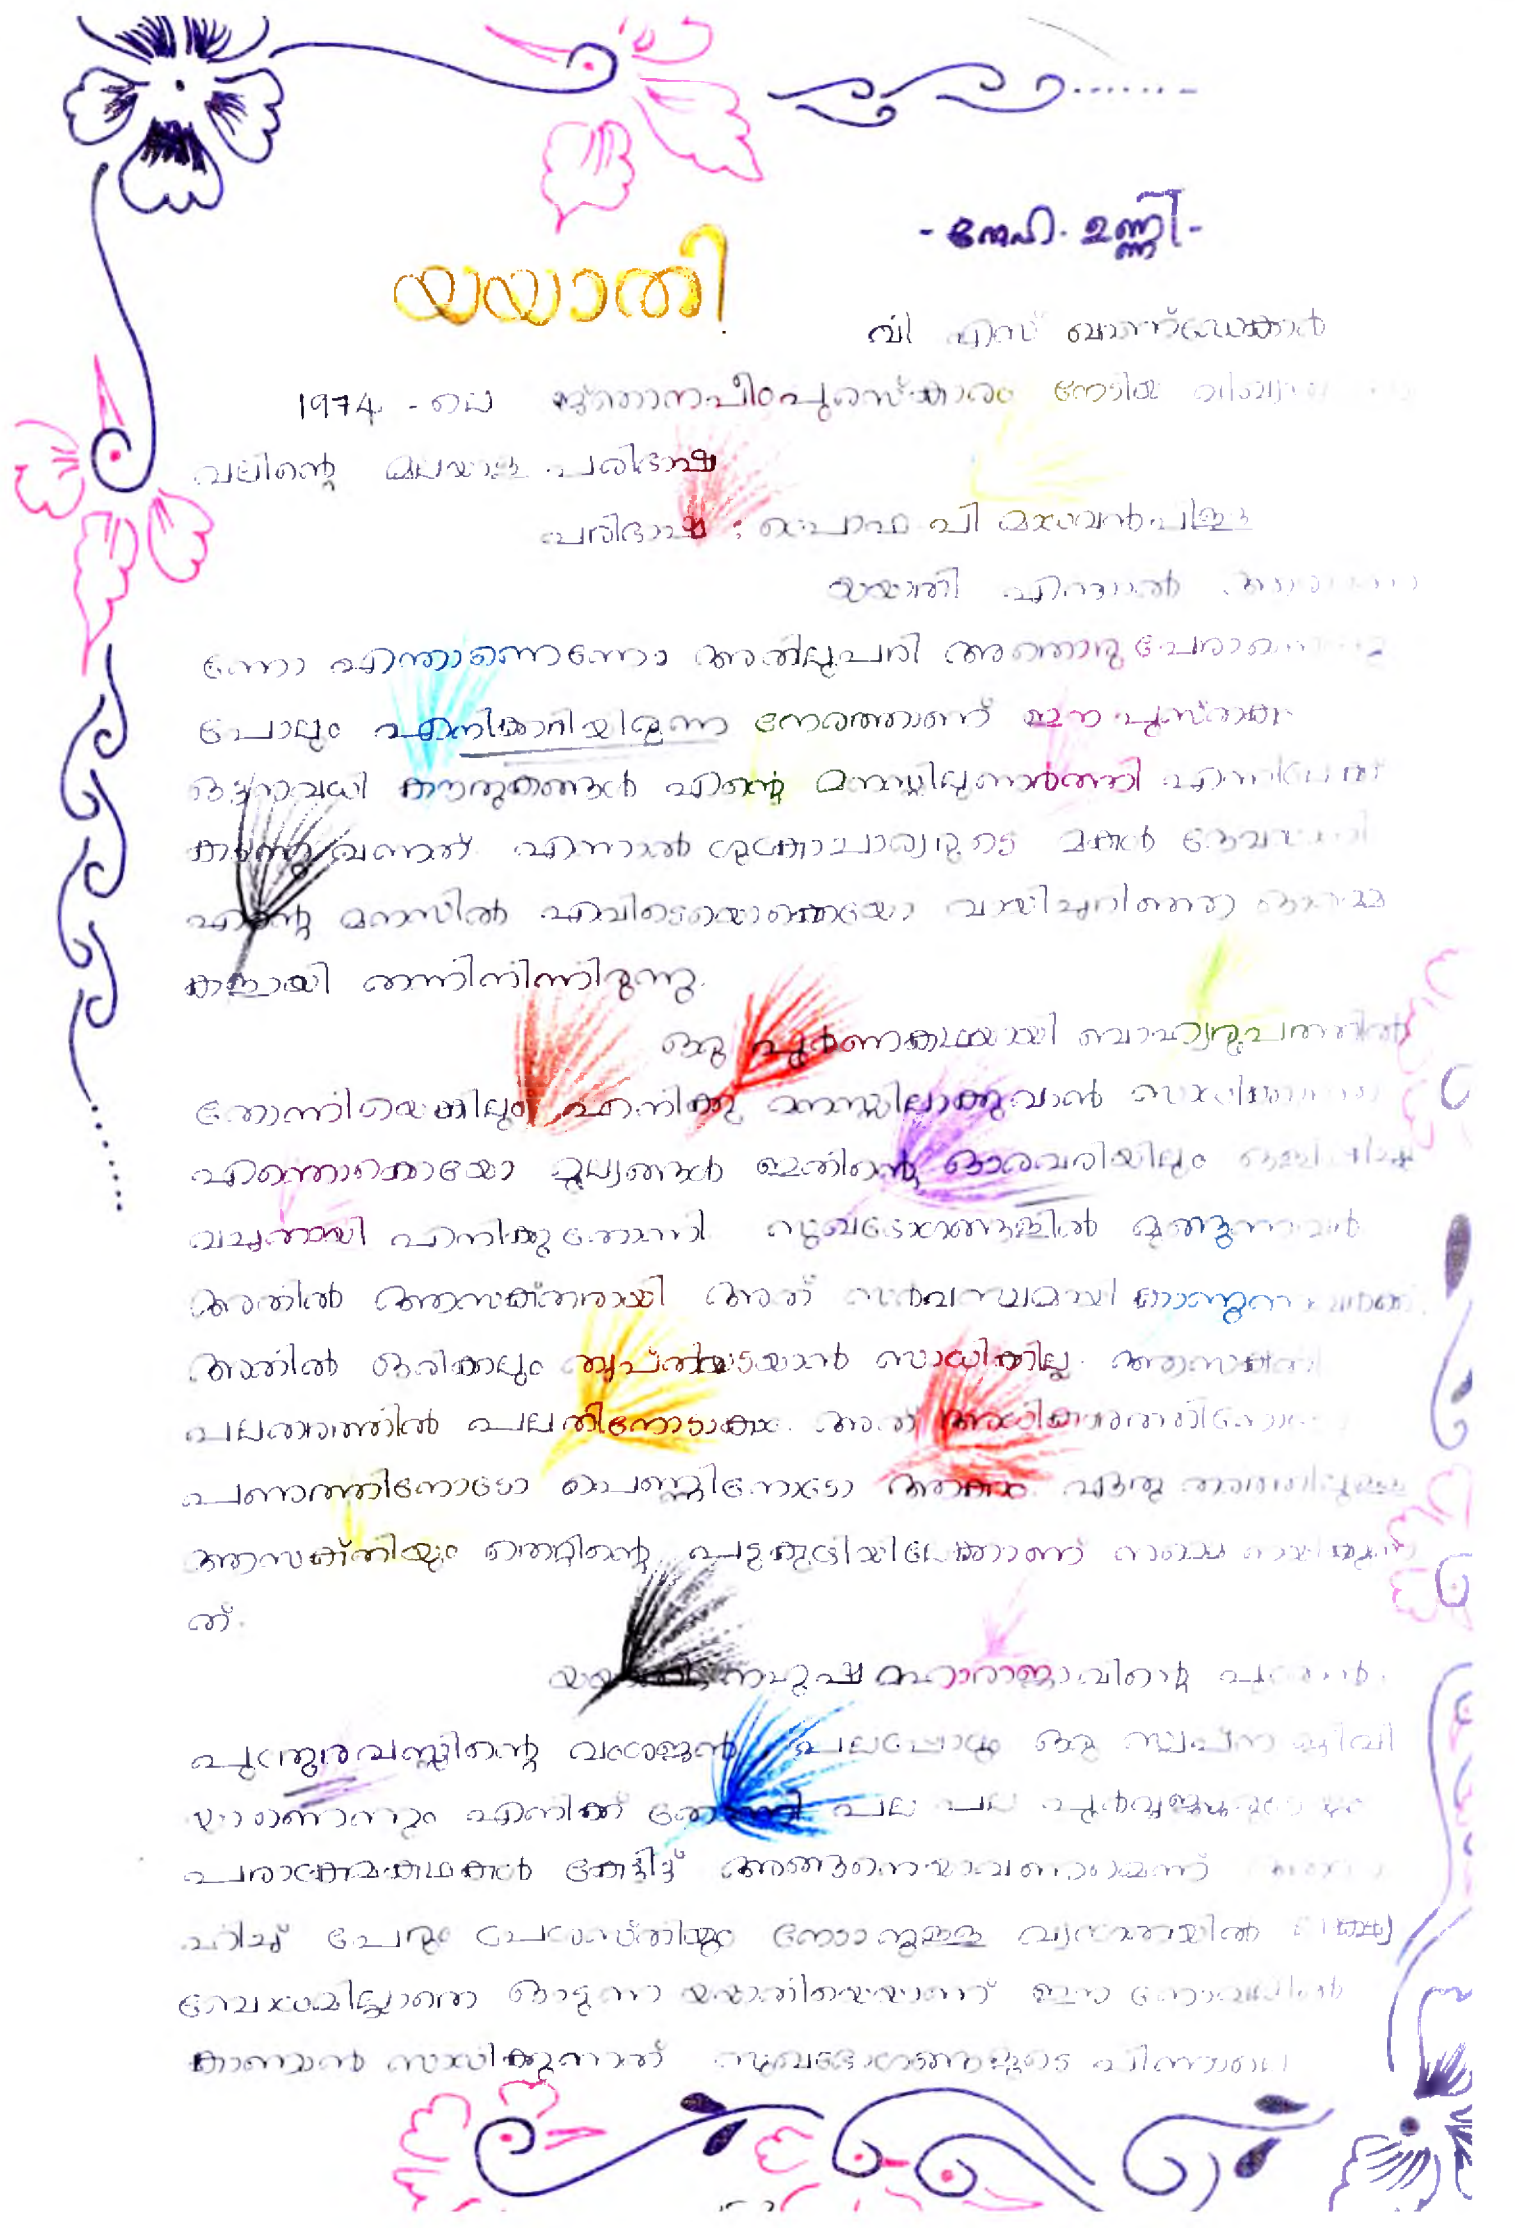 - സ്നേഹ. ഉണ്ണി -
യയാതി
വി എസ് ഖാണ്ഡേക്കർ
1974 - ലെ ജ്ഞാനപീഠപുരസ്കാരം നേടിയ
വലിന്റെ മലയാള പരിഭാഷ
പരിഭാഷ : പ്രൊഫ പി മാധവൻപിള്ള
യയാതി എന്നാൽ
ന്നോ എന്താണെന്നോ അതിലുപരി അതൊരു
പോലും എനിക്കറിയില്ലന്ന നേരത്താണ് ഈ പുസ്തകം
ഒട്ടനവധി കൗതുകങ്ങൾ എന്റെ മനസ്സിലുണർത്തി
കടന്നു വന്നത് എന്നാൽ ശുക്രാചാര്യരുടെ മകൾ ദേവയാനി
എന്റെ മനസിൽ എവിടെയൊക്കെയോ വായിച്ചറിഞ്ഞ ഓർമ്മ
കളായി തങ്ങിനിന്നിരുന്നു.
ഒരു പൂർണകഥയായി ബാഹ്യരൂപത്തിൽ
തോന്നിയെങ്കിലും എനിക്കു മനസ്സിലാക്കുവാൻ
എന്തൊക്കെയോ മൂല്യങ്ങൾ ഇതിന്റെ ഓരോവരിയിലും
വച്ചതായി എനിക്കു തോന്നി സുഖഭോഗങ്ങളിൽ മുങ്ങുന്നവർ
അതിൽ ആസക്തരായി അത് സർവസ്വമായി കാണുന്നവർക്ക്
അതിൽ ഒരിക്കലും തൃപ്തിയടയാൻ സാധിക്കില്ല. ആസക്തി
പലതരത്തിൽ പലതിനോടാകാം. അത് അധികാരത്തിനോടോ
പണത്തിനോടോ പെണ്ണിനോടോ ആകാം. ഏതു തരത്തിലുള്ള
ആസക്തിയും തെറ്റിന്റെ പടുകുഴിയിലേക്കാണ് നമ്മെ നയിക്കുന്ന
ത്.
യയാതി, നഹുഷ മഹാരാജാവിന്റെ പുത്രൻ.
പുരൂരവസ്സിന്റെ വംശജൻ, പലപ്പോഴും ഒരു സ്വപ്ന ജീവി
യാണെന്നും എനിക്ക് തോന്നി പല പല പൂർവ്വജന്മരുടെയും
പരാക്രമകഥകൾ കേട്ടിട്ട് അങ്ങനെയാവണമെന്ന്
ഹിച്ച് പേരും പ്രശസ്തിയും നേടാനുള്ള വ്യഗ്രതയിൽ
വിശ്രമമില്ലാതെ ഓടുന്ന യയാതിയെയാണ് ഈ നോവലിൽ
കാണാൻ സാധിക്കുന്നത് സുഖഭോഗങ്ങളുടെ പിന്നാലെ